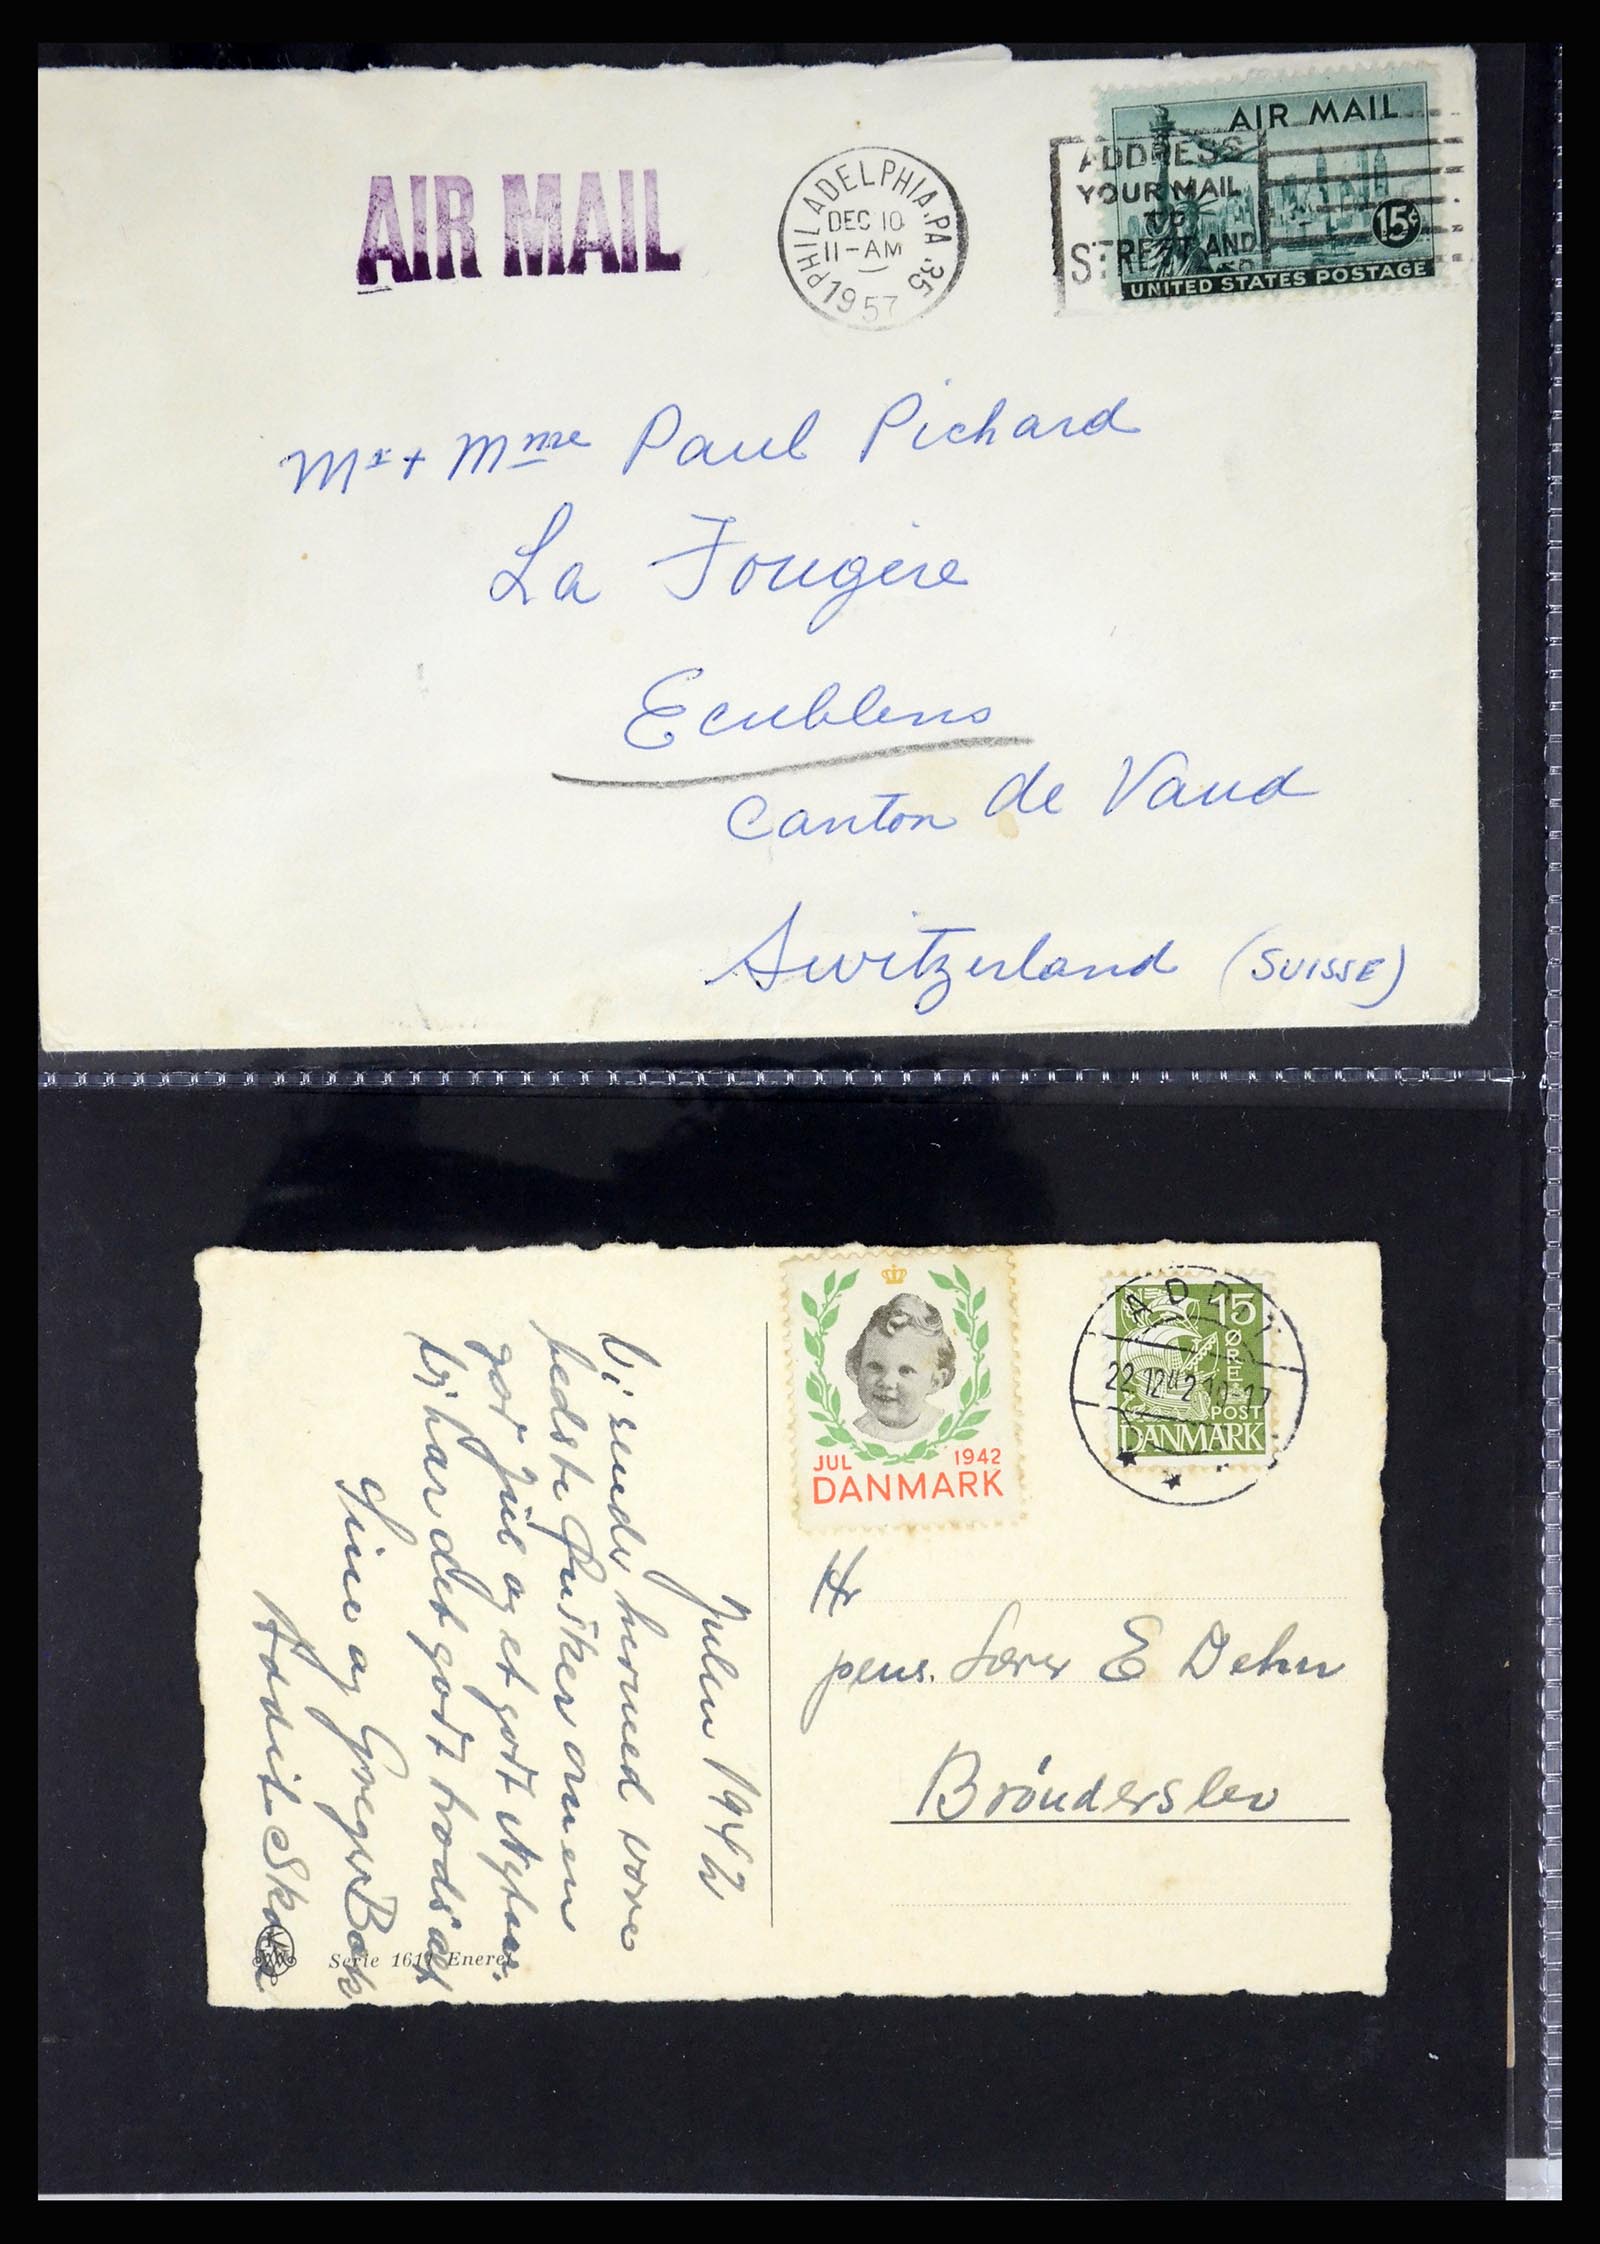 AIR MAIL
PHILADELPHIA, PA. 35
DEC 10
11-AM
1957
ADDRESS
YOUR MAIL
TO
STREET AND
AIR MAIL
15¢
UNITED STATES POSTAGE
Mr + Mme Paul Pichard
La Fougère
Ecublens
Canton de Vaud
Switzerland (SUISSE)
JUL 1942
DANMARK
15
ØRE
POST
DANMARK
22.12.42
Julen 1942
Vi sender hermed vore
bedste Ønsker om en
god Jul og et godt Nytaar.
Vi har det godt trods alt
Sine og Greger Bak
Serie 1611 Eneret
Hr
pens. Lærer E Dehn
Brönderslev